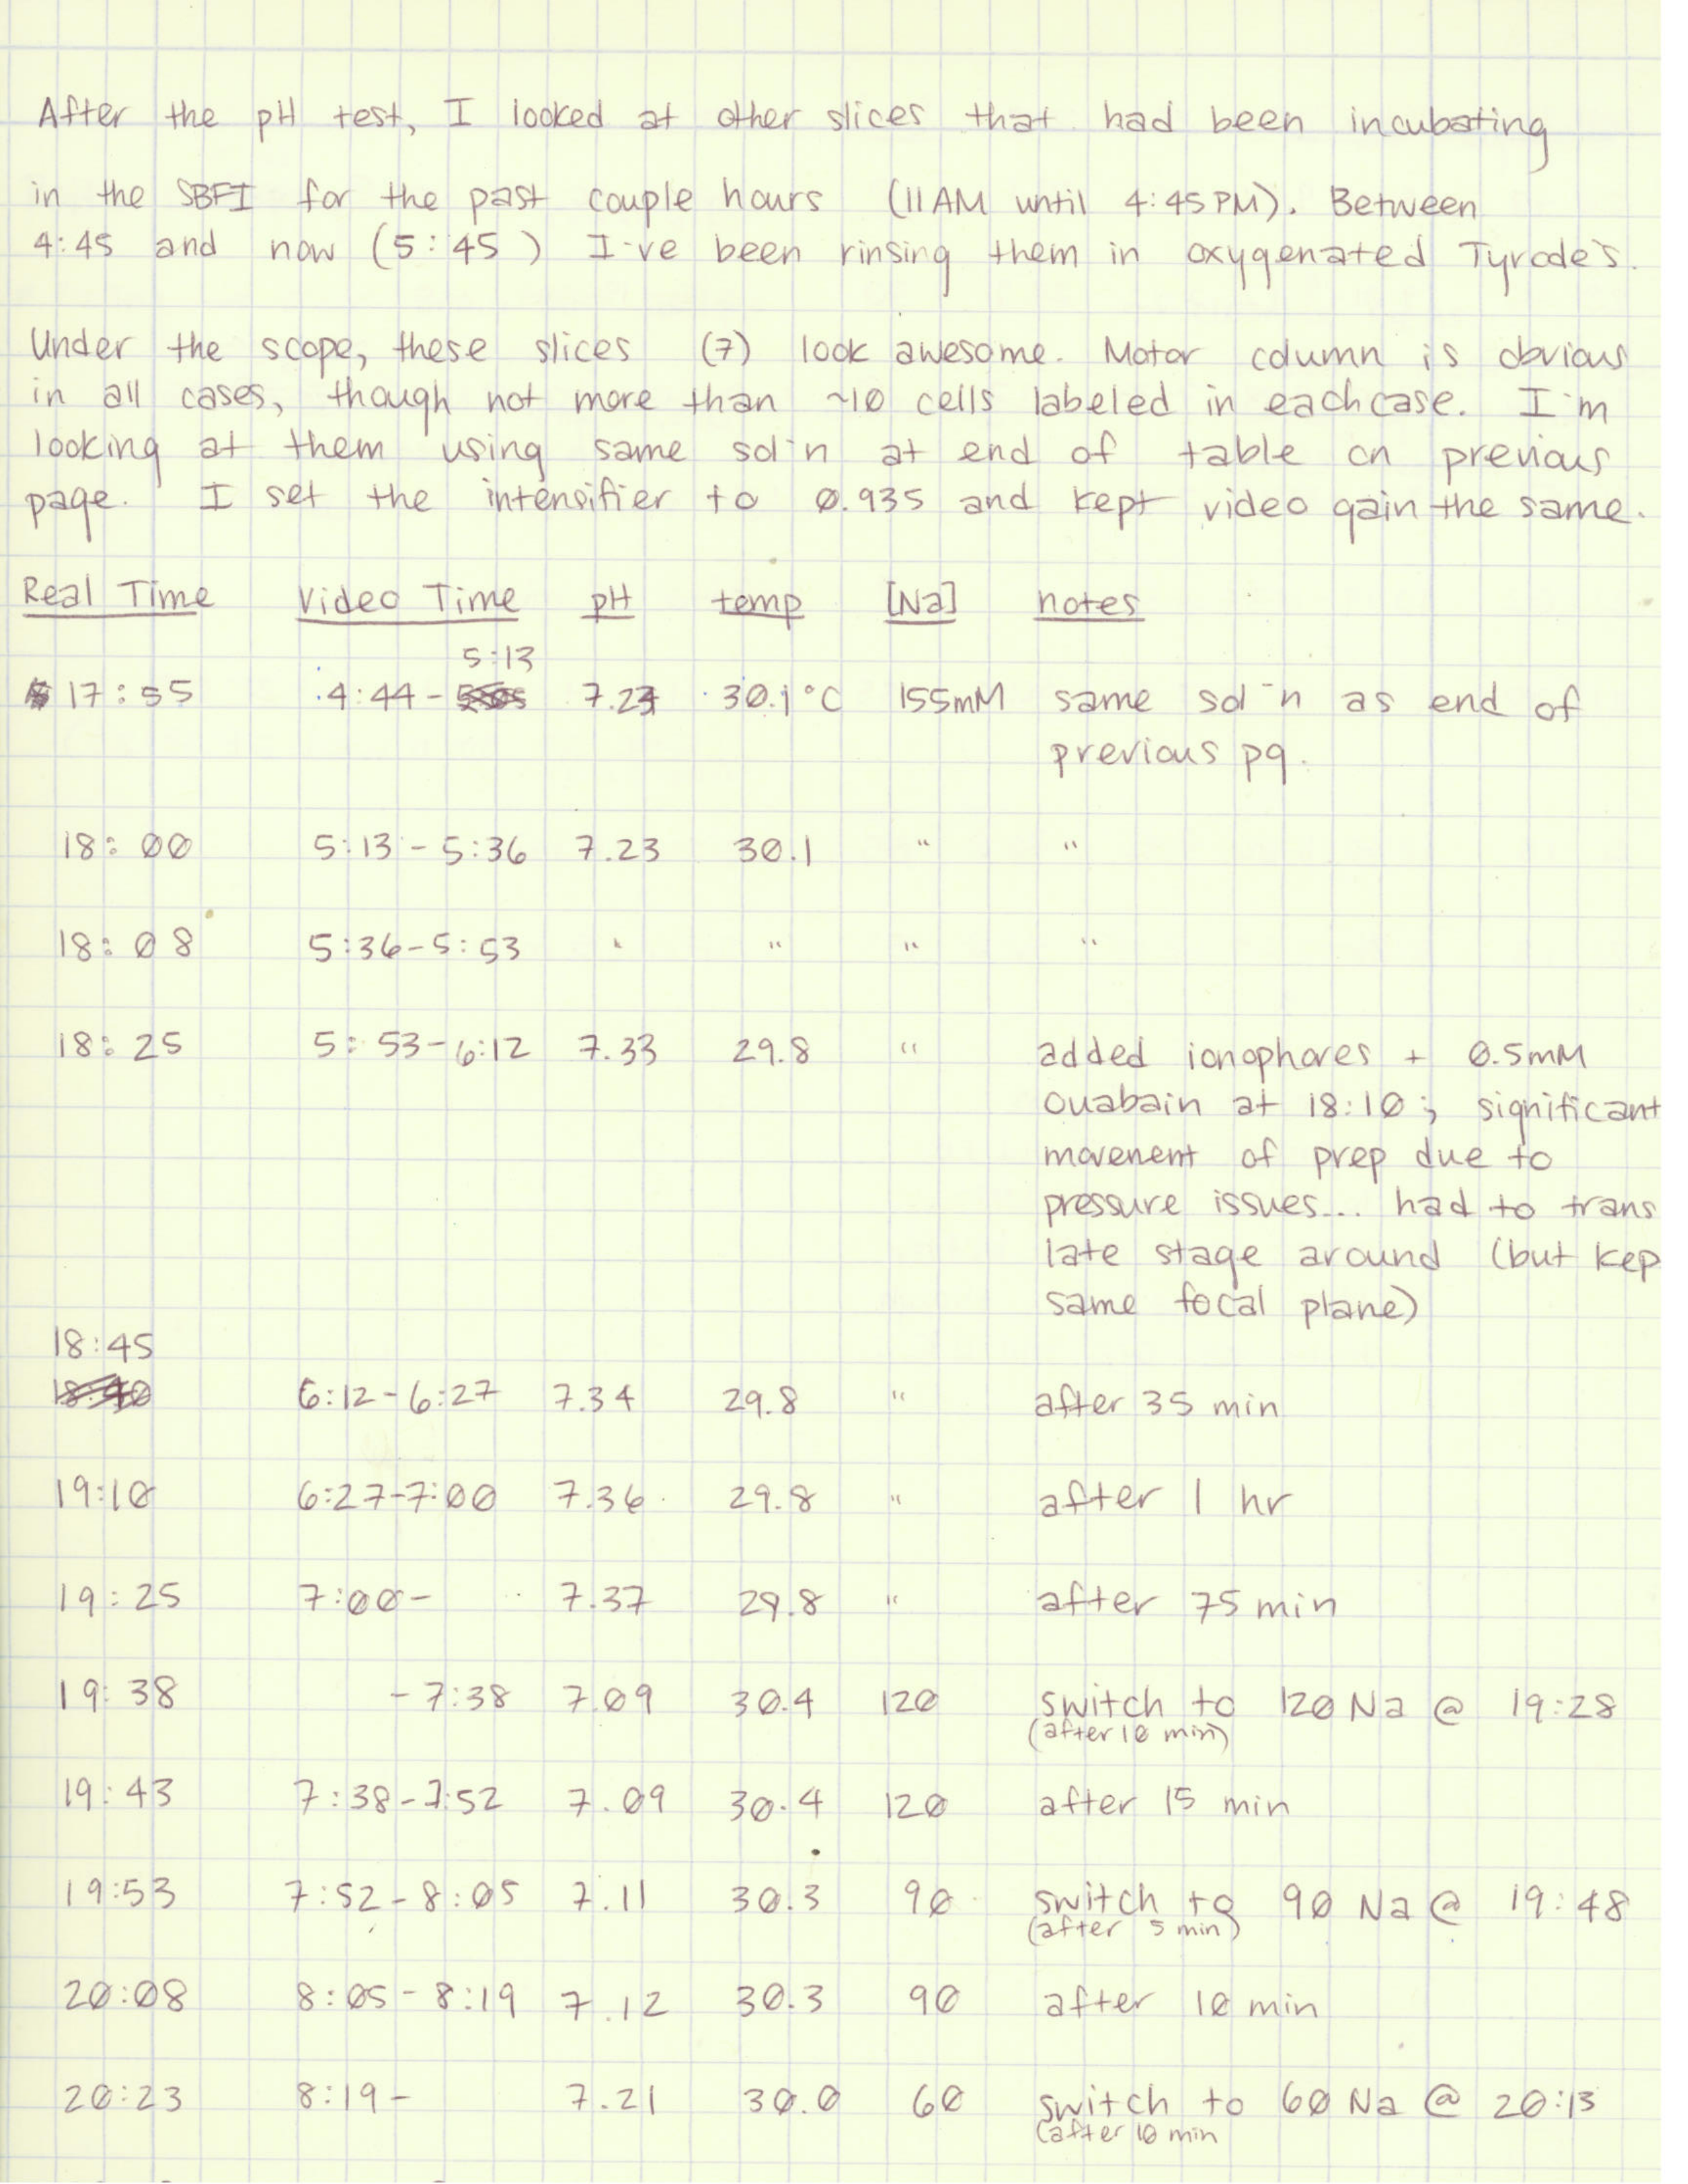 After the pH test, I looked at other slices that had been incubating
in the SBFI for the past couple hours (11AM until 4:45PM). Between
4:45 and now (5:45) I've been rinsing them in oxygenated Tyrode's.
Under the scope, these slices (7) look awesome. Motor column is obvious
in all cases, though not more than ~10 cells labeled in each case. I'm
looking at them using same sol'n at end of table on previous
page. I set the intensifier to 0.935 and kept video gain the same.
Real Time Video Time pH temp [Na] notes
5:13
17:55 4:44- 7.23 30.1°C 155mM same sol'n as end of
previous pg.
18:00 5:13-5:36 7.23 30.1 " "
18:08 5:36-5:53 " " " "
18:25 5:53-6:12 7.33 29.8 " added ionophores + 0.5mM
ouabain at 18:10; significant
movement of prep due to
pressure issues... had to trans
late stage around (but kep
same focal plane)
18:45
6:12-6:27 7.34 29.8 " after 35 min
19:10 6:27-7:00 7.36 29.8 " after 1 hr
19:25 7:00- 7.37 29.8 " after 75 min
19:38 -7:38 7.09 30.4 120 switch to 120 Na @ 19:28
(after 10 min)
19:43 7:38-7:52 7.09 30.4 120 after 15 min
19:53 7:52-8:05 7.11 30.3 90 switch to 90 Na @ 19:48
(after 5 min)
20:08 8:05-8:19 7.12 30.3 90 after 10 min
20:23 8:19- 7.21 30.0 60 switch to 60 Na @ 20:13
(after 10 min